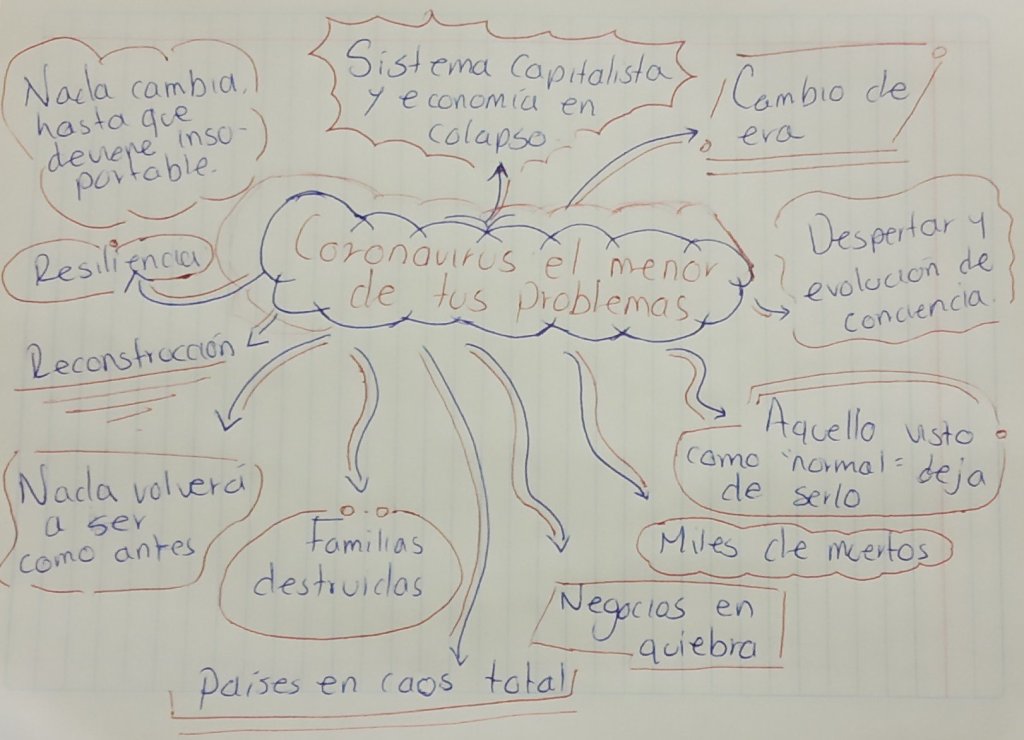 Nada cambia
hasta que
deviene inso-
portable.
Sistema Capitalista
y economía en
colapso
Cambio de
era
Resiliencia
Coronavirus el menor
de tus problemas
Despertar y
evolución de
conciencia.
Reconstrucción
Aquello visto
como "normal" deja
de serlo
Nada volverá
a ser
como antes
Familias
destruidas
Miles de muertos
Negocios en
quiebra
países en caos total